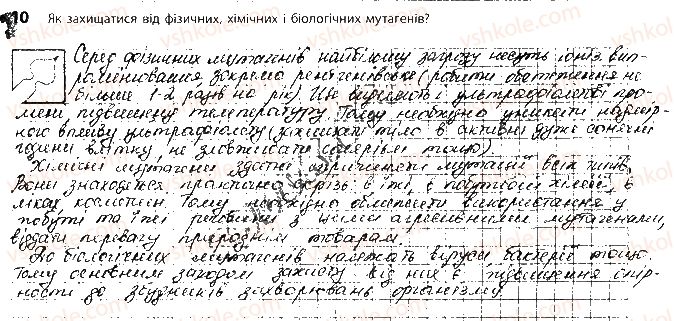 10 Як захищатися від фізичних, хімічних і біологічних мутагенів?
Серед фізичних мутагенів найбільшу загрозу несуть іоніз. вип-
ромінювання зокрема рентгенівське (робити обстеження не
більше 1-2 разів на рік). Ще виділяють і ультрафіолетові про-
мені підвищену температуру. Тому необхідно уникати надмір-
ного впливу ультрафіолету (захищати тіло в активні дуже сонячні
години влітку, не зловживати солярієм тощо)
Хімічні мутагени здатні спричиняти мутації всіх типів.
Вони знаходяться практично скрізь в їжі, в побутовій хімії, в
ліках косметиці. Тому необхідно обмежити використання у
побуті та їжі речовини з цими агресивними мутагенами,
віддати перевагу природнім товарам.
До біологічних мутагенів належать віруси бактерії тощо.
Тому основним заходом захисту від них є підвищення опір-
ности до збудників захворювань організму.